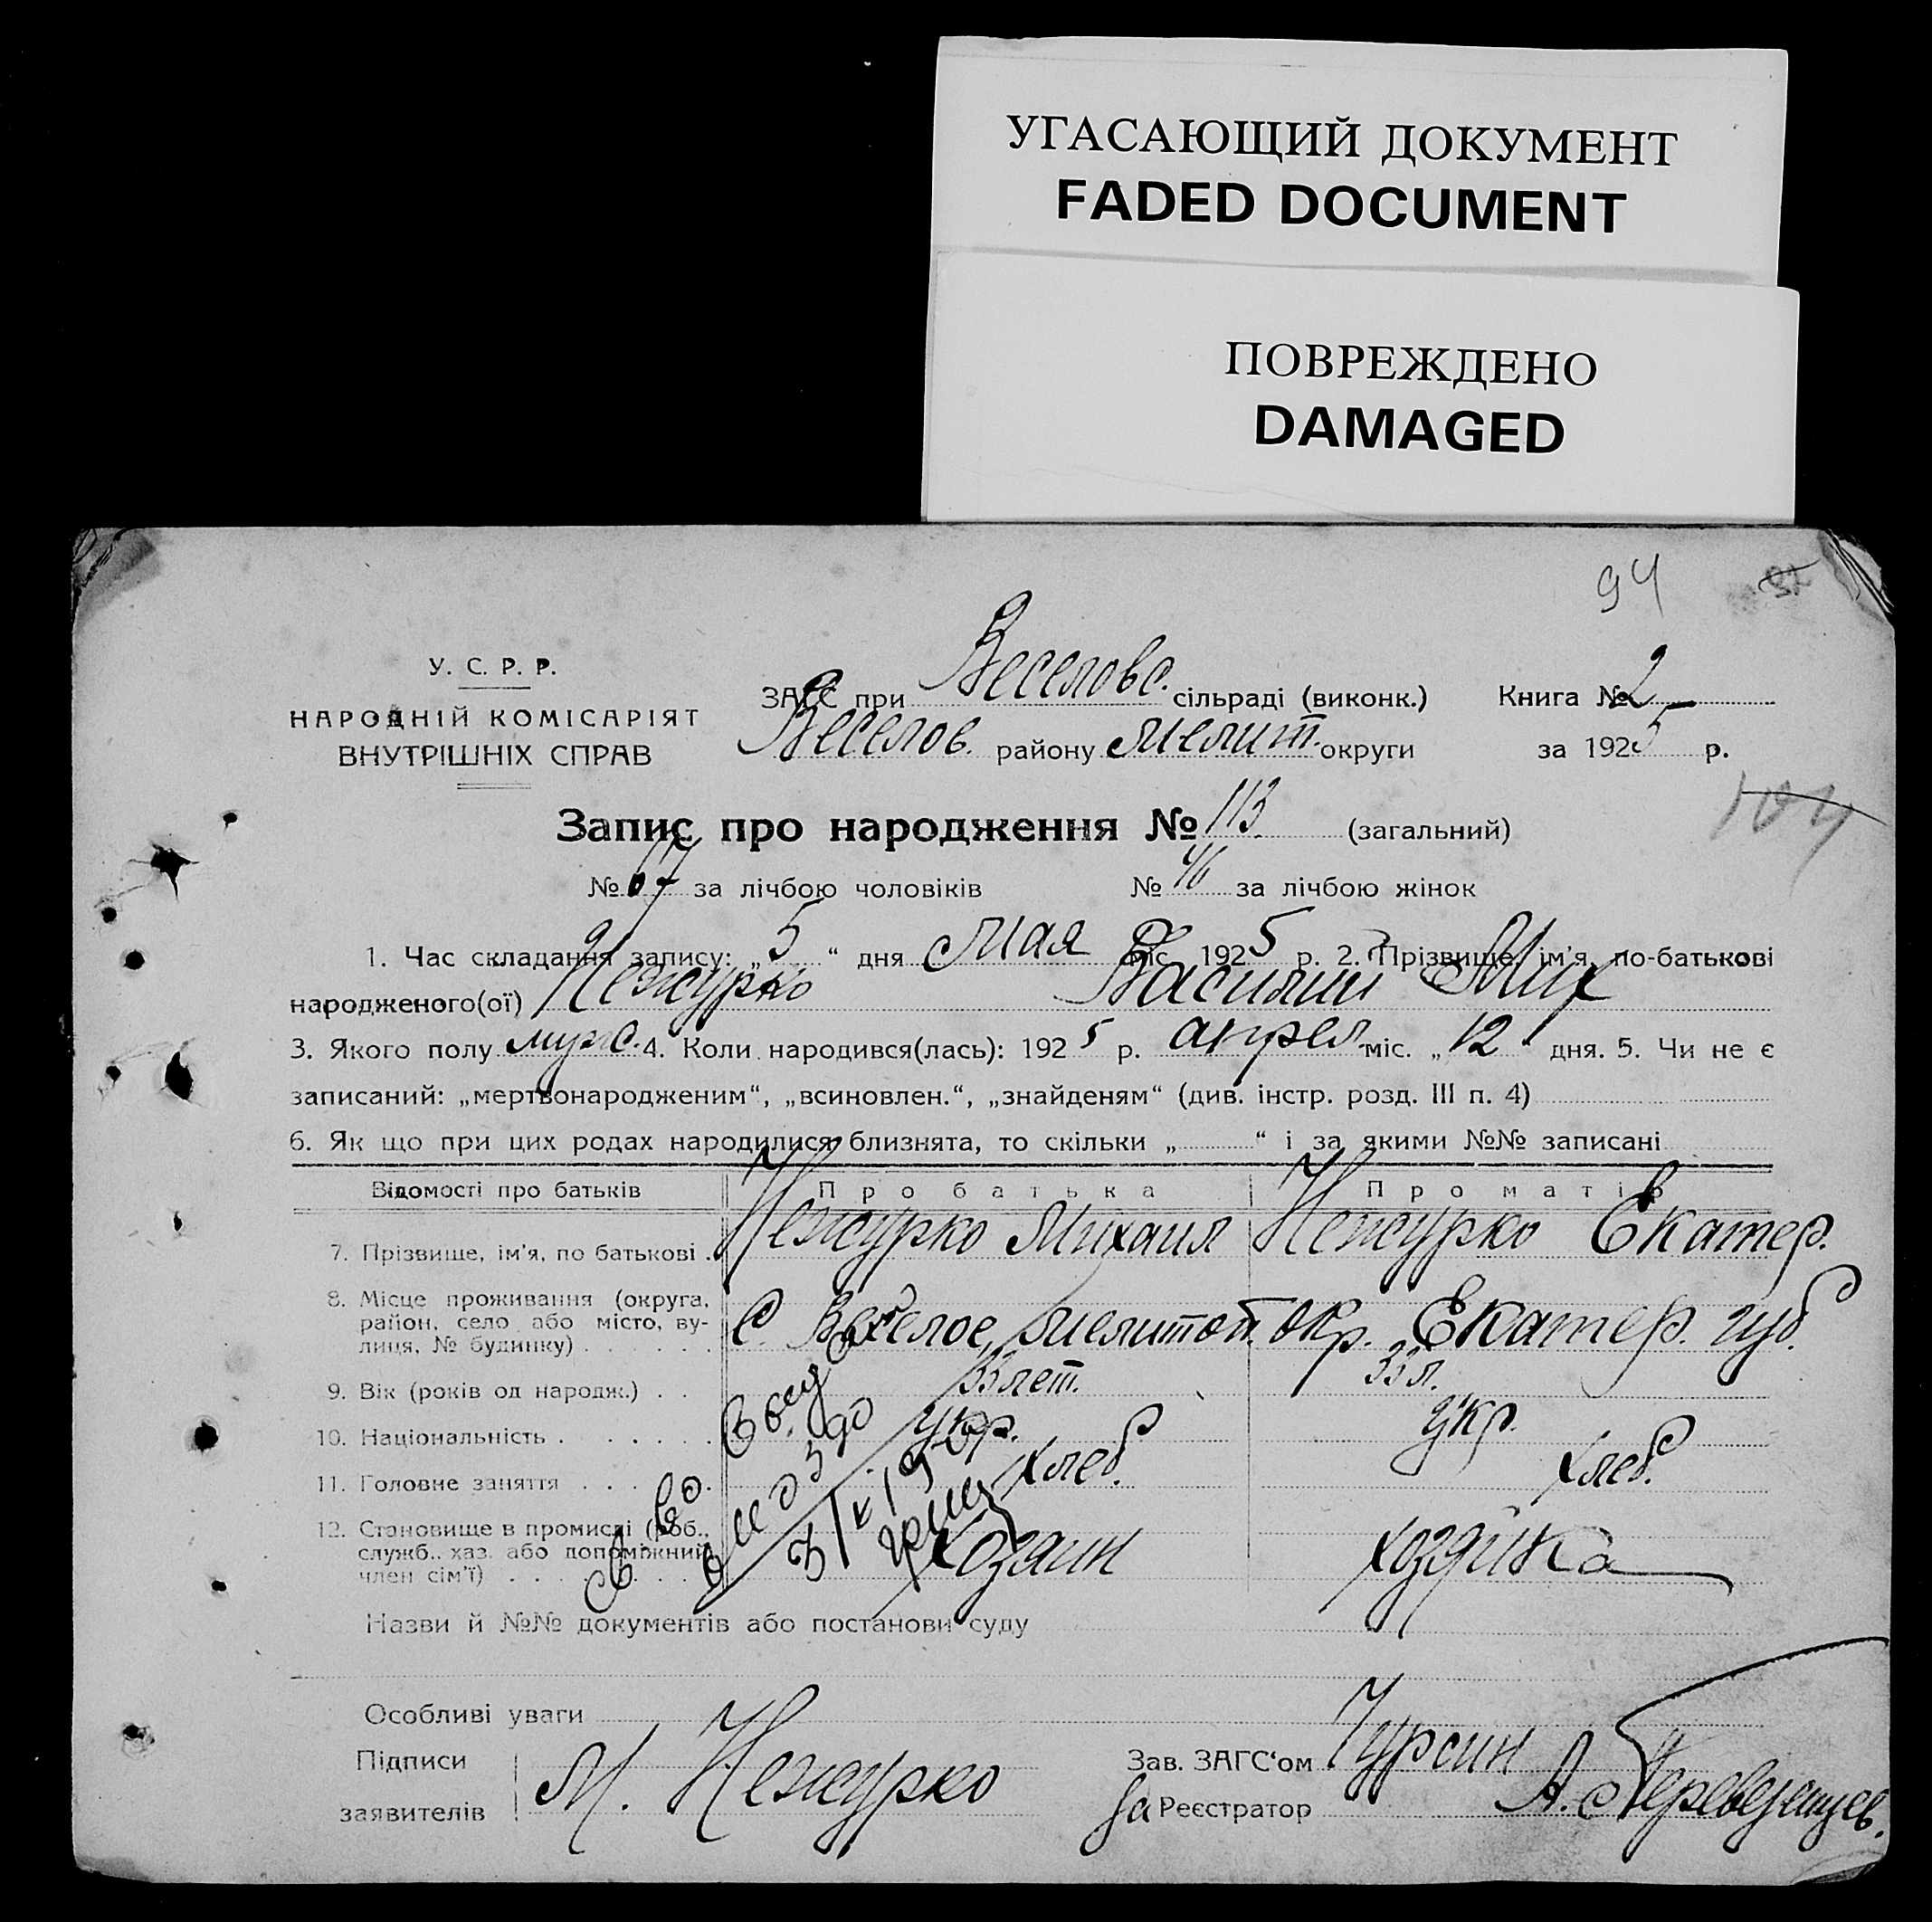 УГАСАЮЩИЙ ДОКУМЕНТ
FADED DOCUMENT
ПОВРЕЖДЕНО
DAMAGED
94
У. С. Р. Р.
НАРОДНІЙ КОМІСАРІЯТ
ВНУТРІШНІХ СПРАВ
ЗАГС при Веселовс. сільраді (виконк.) Книга № 2
Веселов. району Мелит. округи за 1925 р.
104
Запис про народження № 113 (загальний)
№ 67 за лічбою чоловіків № 46 за лічбою жінок
1. Час складання запису: „5“ дня Мая міс. 1925 р. 2. Прізвище, ім'я, по-батькові
народженого(ої) Нежурко Василий Мих
3. Якого полу мужс. 4. Коли народився(лась): 1925 р. апрел міс. „12“ дня. 5. Чи не є
записаний: „мертвонародженим“, „всиновлен.“, „знайденям“ (див. інстр. розд. III п. 4)
6. Як що при цих родах народилися близнята, то скільки „ “ і за якими №№ записані
Відомості про батьків Про батька Про матір
7. Прізвище, ім'я, по батькові . Нежурко Михаил Нежурко Екатер.
8. Місце проживання (округа,
район, село або місто, ву-
лиця, № будинку) . . . . . . С. Веселое, Мелитоп. окр. Екатер. губ.
9. Вік (років од народж.) . . 33 лет. 33 л.
10. Національність . . . . . . укр. укр.
11. Головне заняття . . . . . Хлеб. хлеб.
12. Становище в промислі (роб.,
служб., хаз. або допоміжний
член сім'ї) . . . . . . . Хозаин хозяйка
Св во
Назви й №№ документів або постанови суду
Особливі уваги
Підписи
заявителів М. Нежурко
Зав. ЗАГС'ом Чурсин
За Реєстратор А. Перевезенцев.